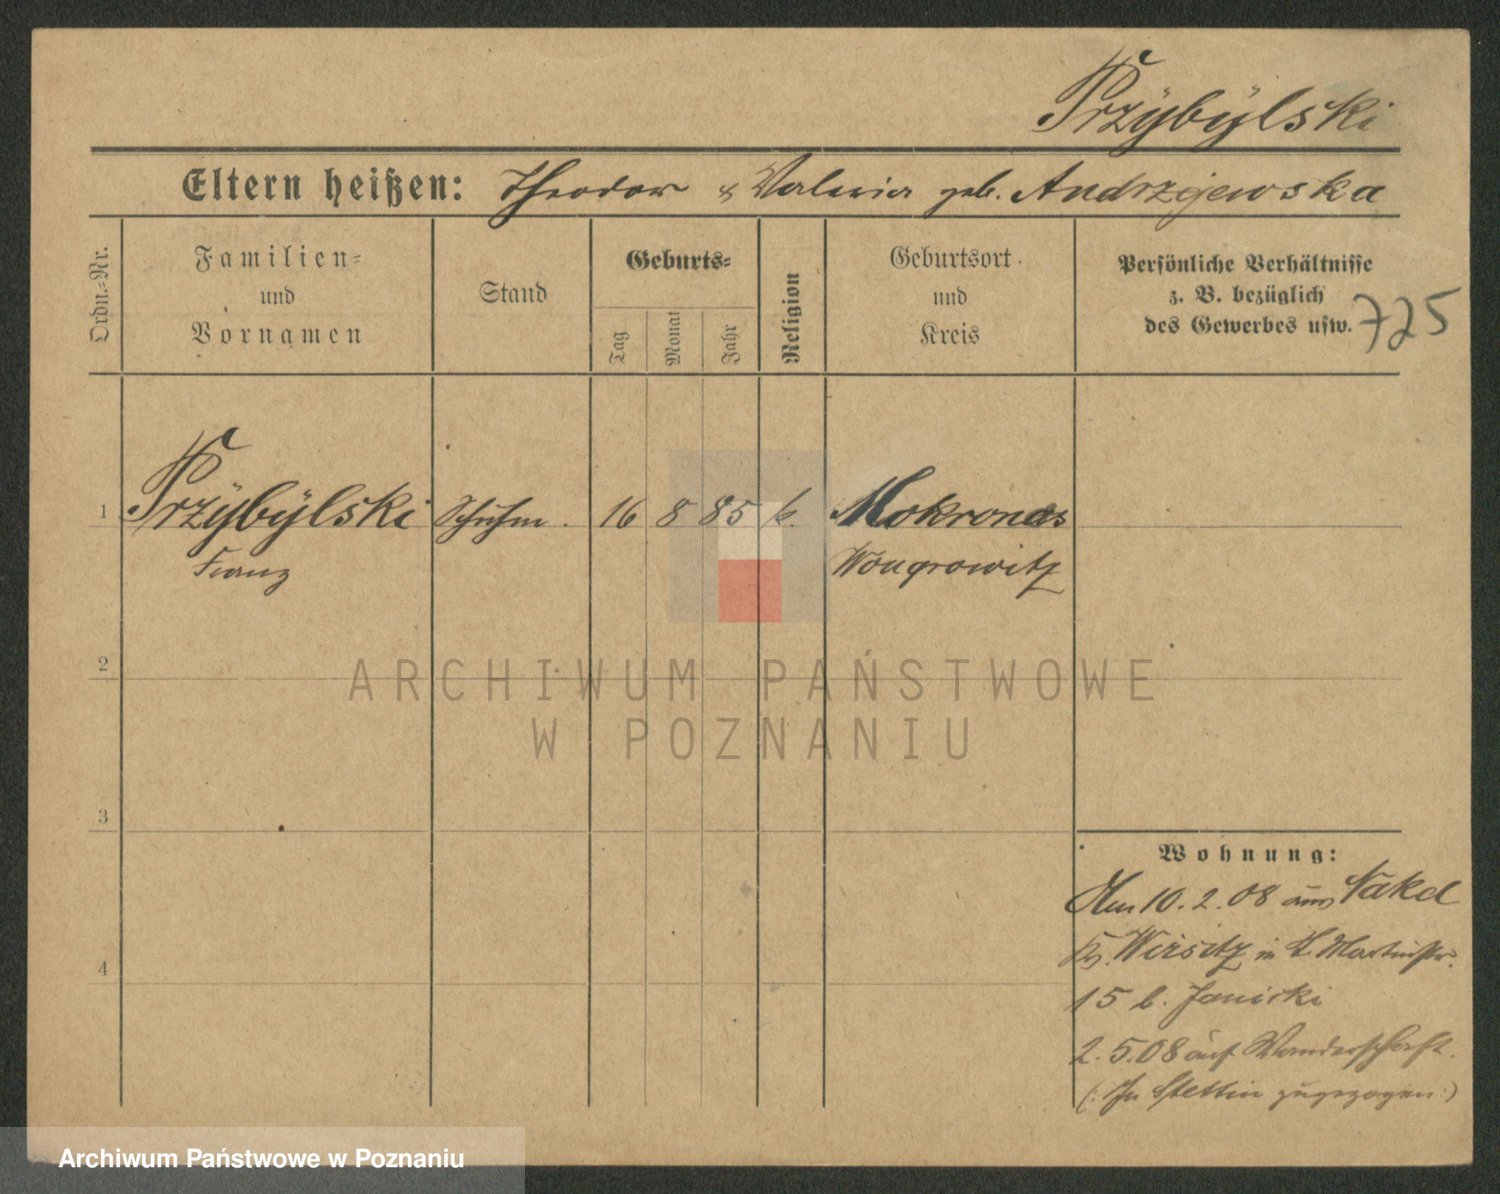 Przÿbÿlski
Eltern heißen: Theodor & Valeria geb. Andrzejewska
Ordn.-Nr.
Familien-
und
Vornamen
Stand
Geburts-
Tag
Monat
Jahr
Religion
Geburtsort
und
Kreis
Persönliche Verhältnisse
z. B. bezüglich
des Gewerbes usw.
725
1 Przÿbÿlski Schuhm. 16 8 85 k. Mokronos
Franz Wongrowitz
2
ARCHIWUM PAŃSTWOWE
W POZNANIU
3
Wohnung:
Am 10. 2. 08 aus Nakel
Kr. Wirsitz in St. Martinstr.
4
15 b. Janicki
2. 5. 08 auf Wanderschaft.
(: In Stettin zugezogen :)
Archiwum Państwowe w Poznaniu